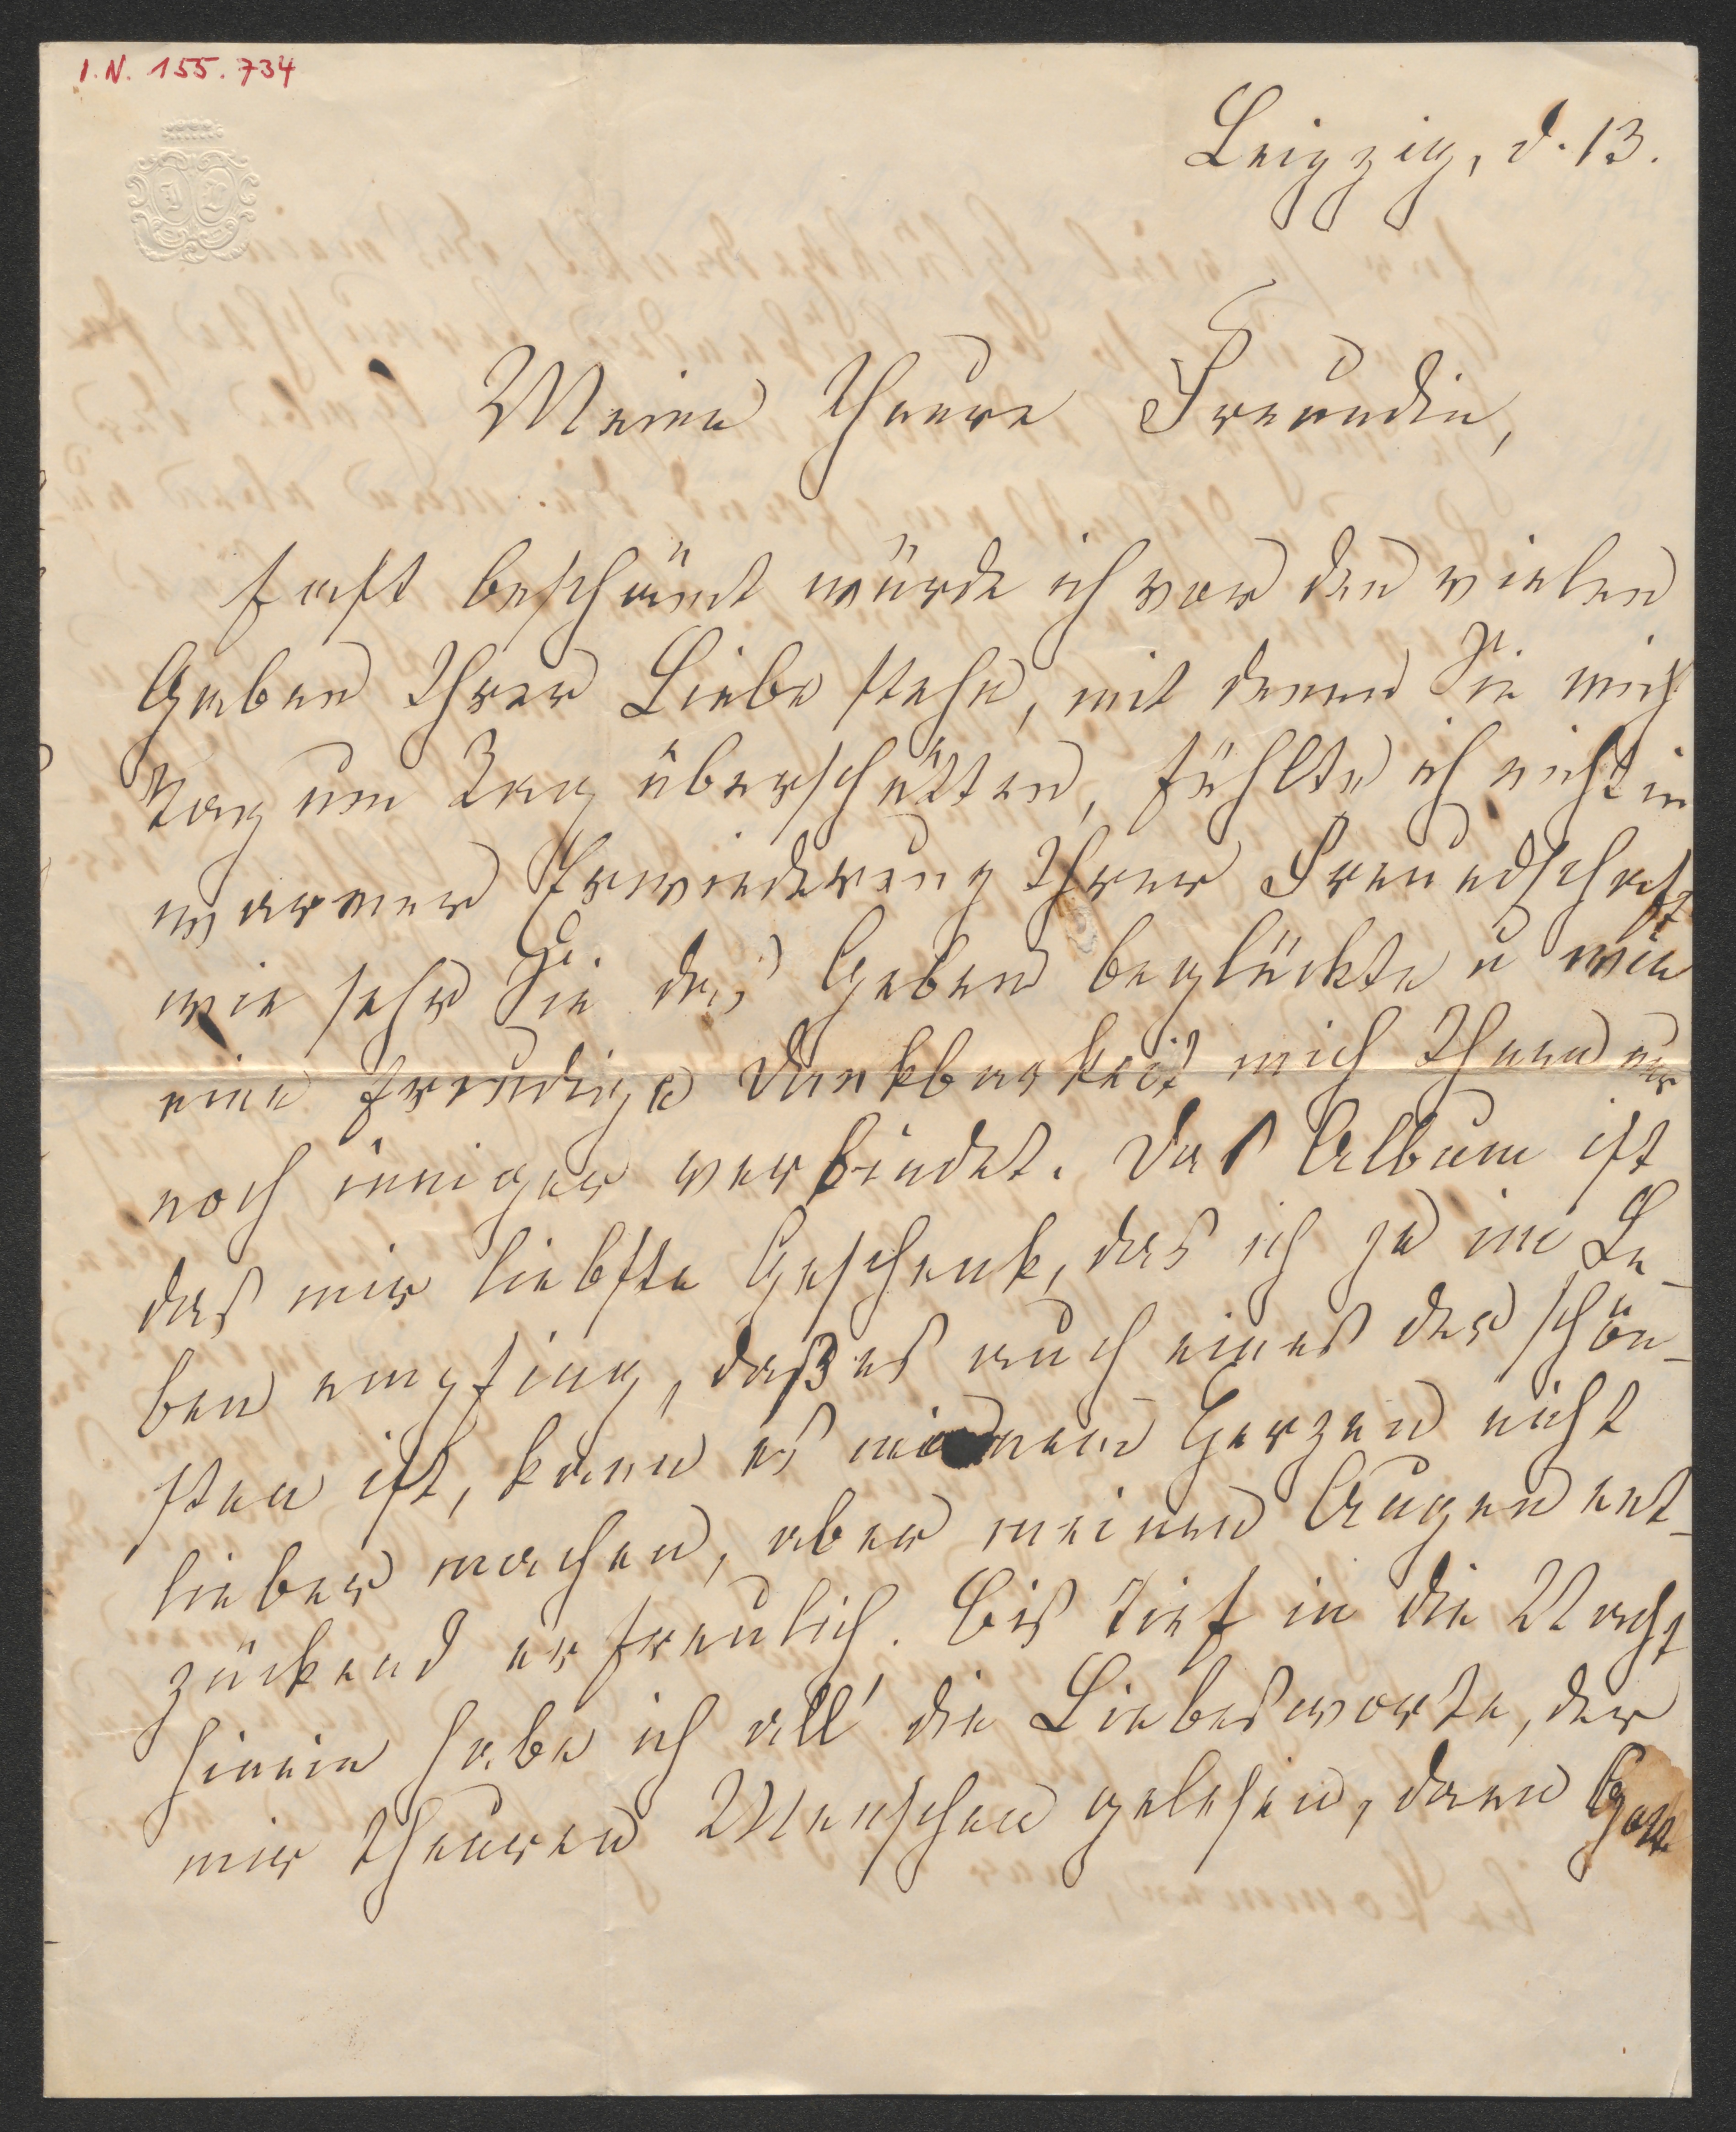 I. N. 155.734
Leipzig, d. 13.
Meine theure Freundin,
fast beschämt würde ich vor den vielen
Gaben Ihrer Liebe stehn, mit denen Sie mich
Tag um Tag überschütten, fühlte ich nicht in
warmer Erwiederung Ihrer Freundschaft
wie sehr Sie das Geben beglückte u wie
eine freudige Dankbarkeit mich Ihnen nur
noch inniger verbindet. Das Album ist
das mir liebste Geschenk, das ich je im Le-
ben empfing, daß es auch eines der schön-
sten ist, kann es meinem Herzen nicht
lieber machen, aber meinen Augen ent-
zückend erfreulich. Bis tief in die Nacht
hinein habe ich all' die Liebesworte, der
mir theuren Menschen gelesen, denen